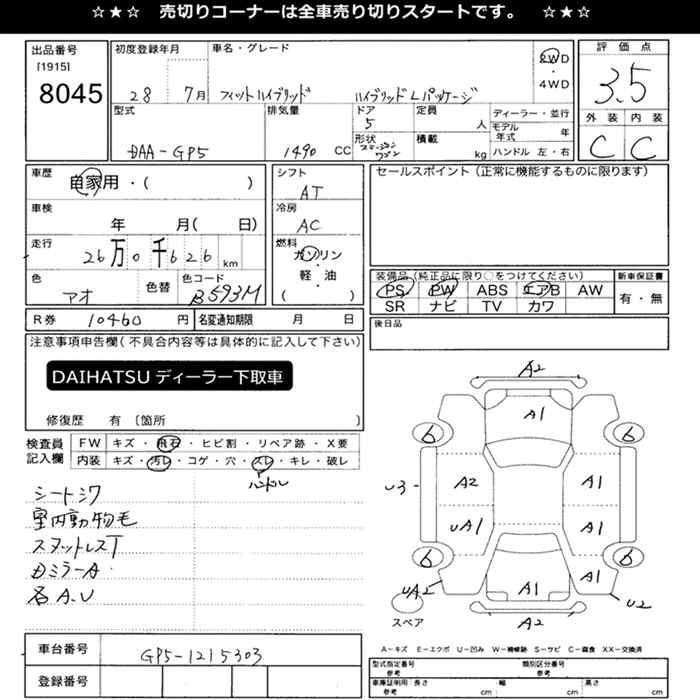 ☆★☆ 売切りコーナーは全車売り切りスタートです。 ☆★☆
出品番号
[1915]
8045
初度登録年月
28 7月
車名・グレード
フィットハイブリッド ハイブリッドLパッケージ
2WD
・
4WD
評価点
3.5
外装 内装
C C
型式
DAA-GP5
排気量
1490 CC
ドア
5
形状
ステーションワゴン
定員
人
積載
kg
ディーラー・並行
モデル年式 年
ハンドル 左・右
車歴
自家用・( )
車検
年 月( 日)
走行
26万0千626 km
色
アオ
色替
色コード
B593M
シフト
AT
冷房
AC
燃料
ガソリン
・
軽・油
( )
セールスポイント(正常に機能するものに限ります)
装備品(純正品に限り○をつけてください)
PS PW ABS エアB AW
SR ナビ TV カワ
新車保証書
有・無
後日品
R券 10460 円
名変通知期限 月 日
注意事項申告欄(不具合内容等は具体的に記入して下さい)
DAIHATSUディーラー下取車
修復歴 有 〔箇所 〕
検査員
記入欄
FW キズ・飛石・ヒビ割・リペア跡・X要
内装 キズ・汚レ・コゲ・穴・スレ・キレ・破レ
ハンドル
シートシワ
室内動物毛
スタットレスT
DミラーA
各A.U
A2
A1
6 6
U3 A2 A1
UA1 A1
6 6
UA2 A1 A1 U2
A2
スペア
A-キズ E-エクボ U-凹み W-補修跡 S-サビ C-腐食 XX-交換済
車台番号
GP5-1215303
登録番号
型式指定番号
参考
類別区分番号
参考
車庫証明用
参考
長さ cm 幅 cm 高さ cm